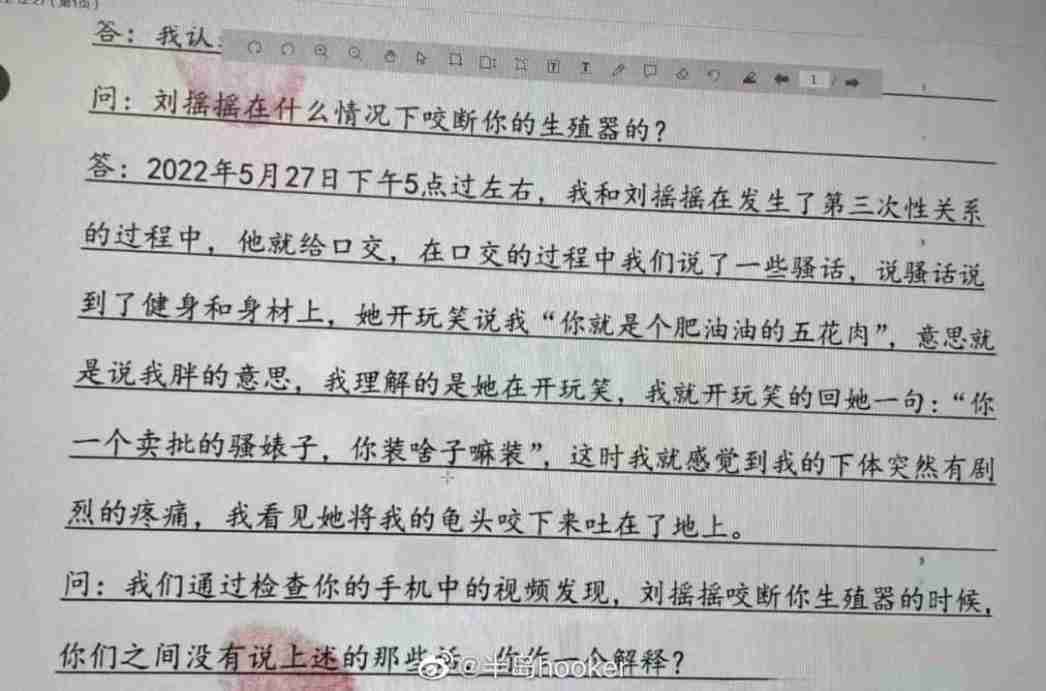 答：我认
1
问：刘摇摇在什么情况下咬断你的生殖器的？
答：2022年5月27日下午5点过左右，我和刘摇摇在发生了第三次性关系
的过程中，他就给口交，在口交的过程中我们说了一些骚话，说骚话说
到了健身和身材上，她开玩笑说我“你就是个肥油油的五花肉”，意思就
是说我胖的意思，我理解的是她在开玩笑，我就开玩笑的回她一句：“你
一个卖批的骚婊子，你装啥子嘛装”，这时我就感觉到我的下体突然有剧
烈的疼痛，我看见她将我的龟头咬下来吐在了地上。
问：我们通过检查你的手机中的视频发现，刘摇摇咬断你生殖器的时候，
你们之间没有说上述的那些话，你作一个解释？
@半岛hooker